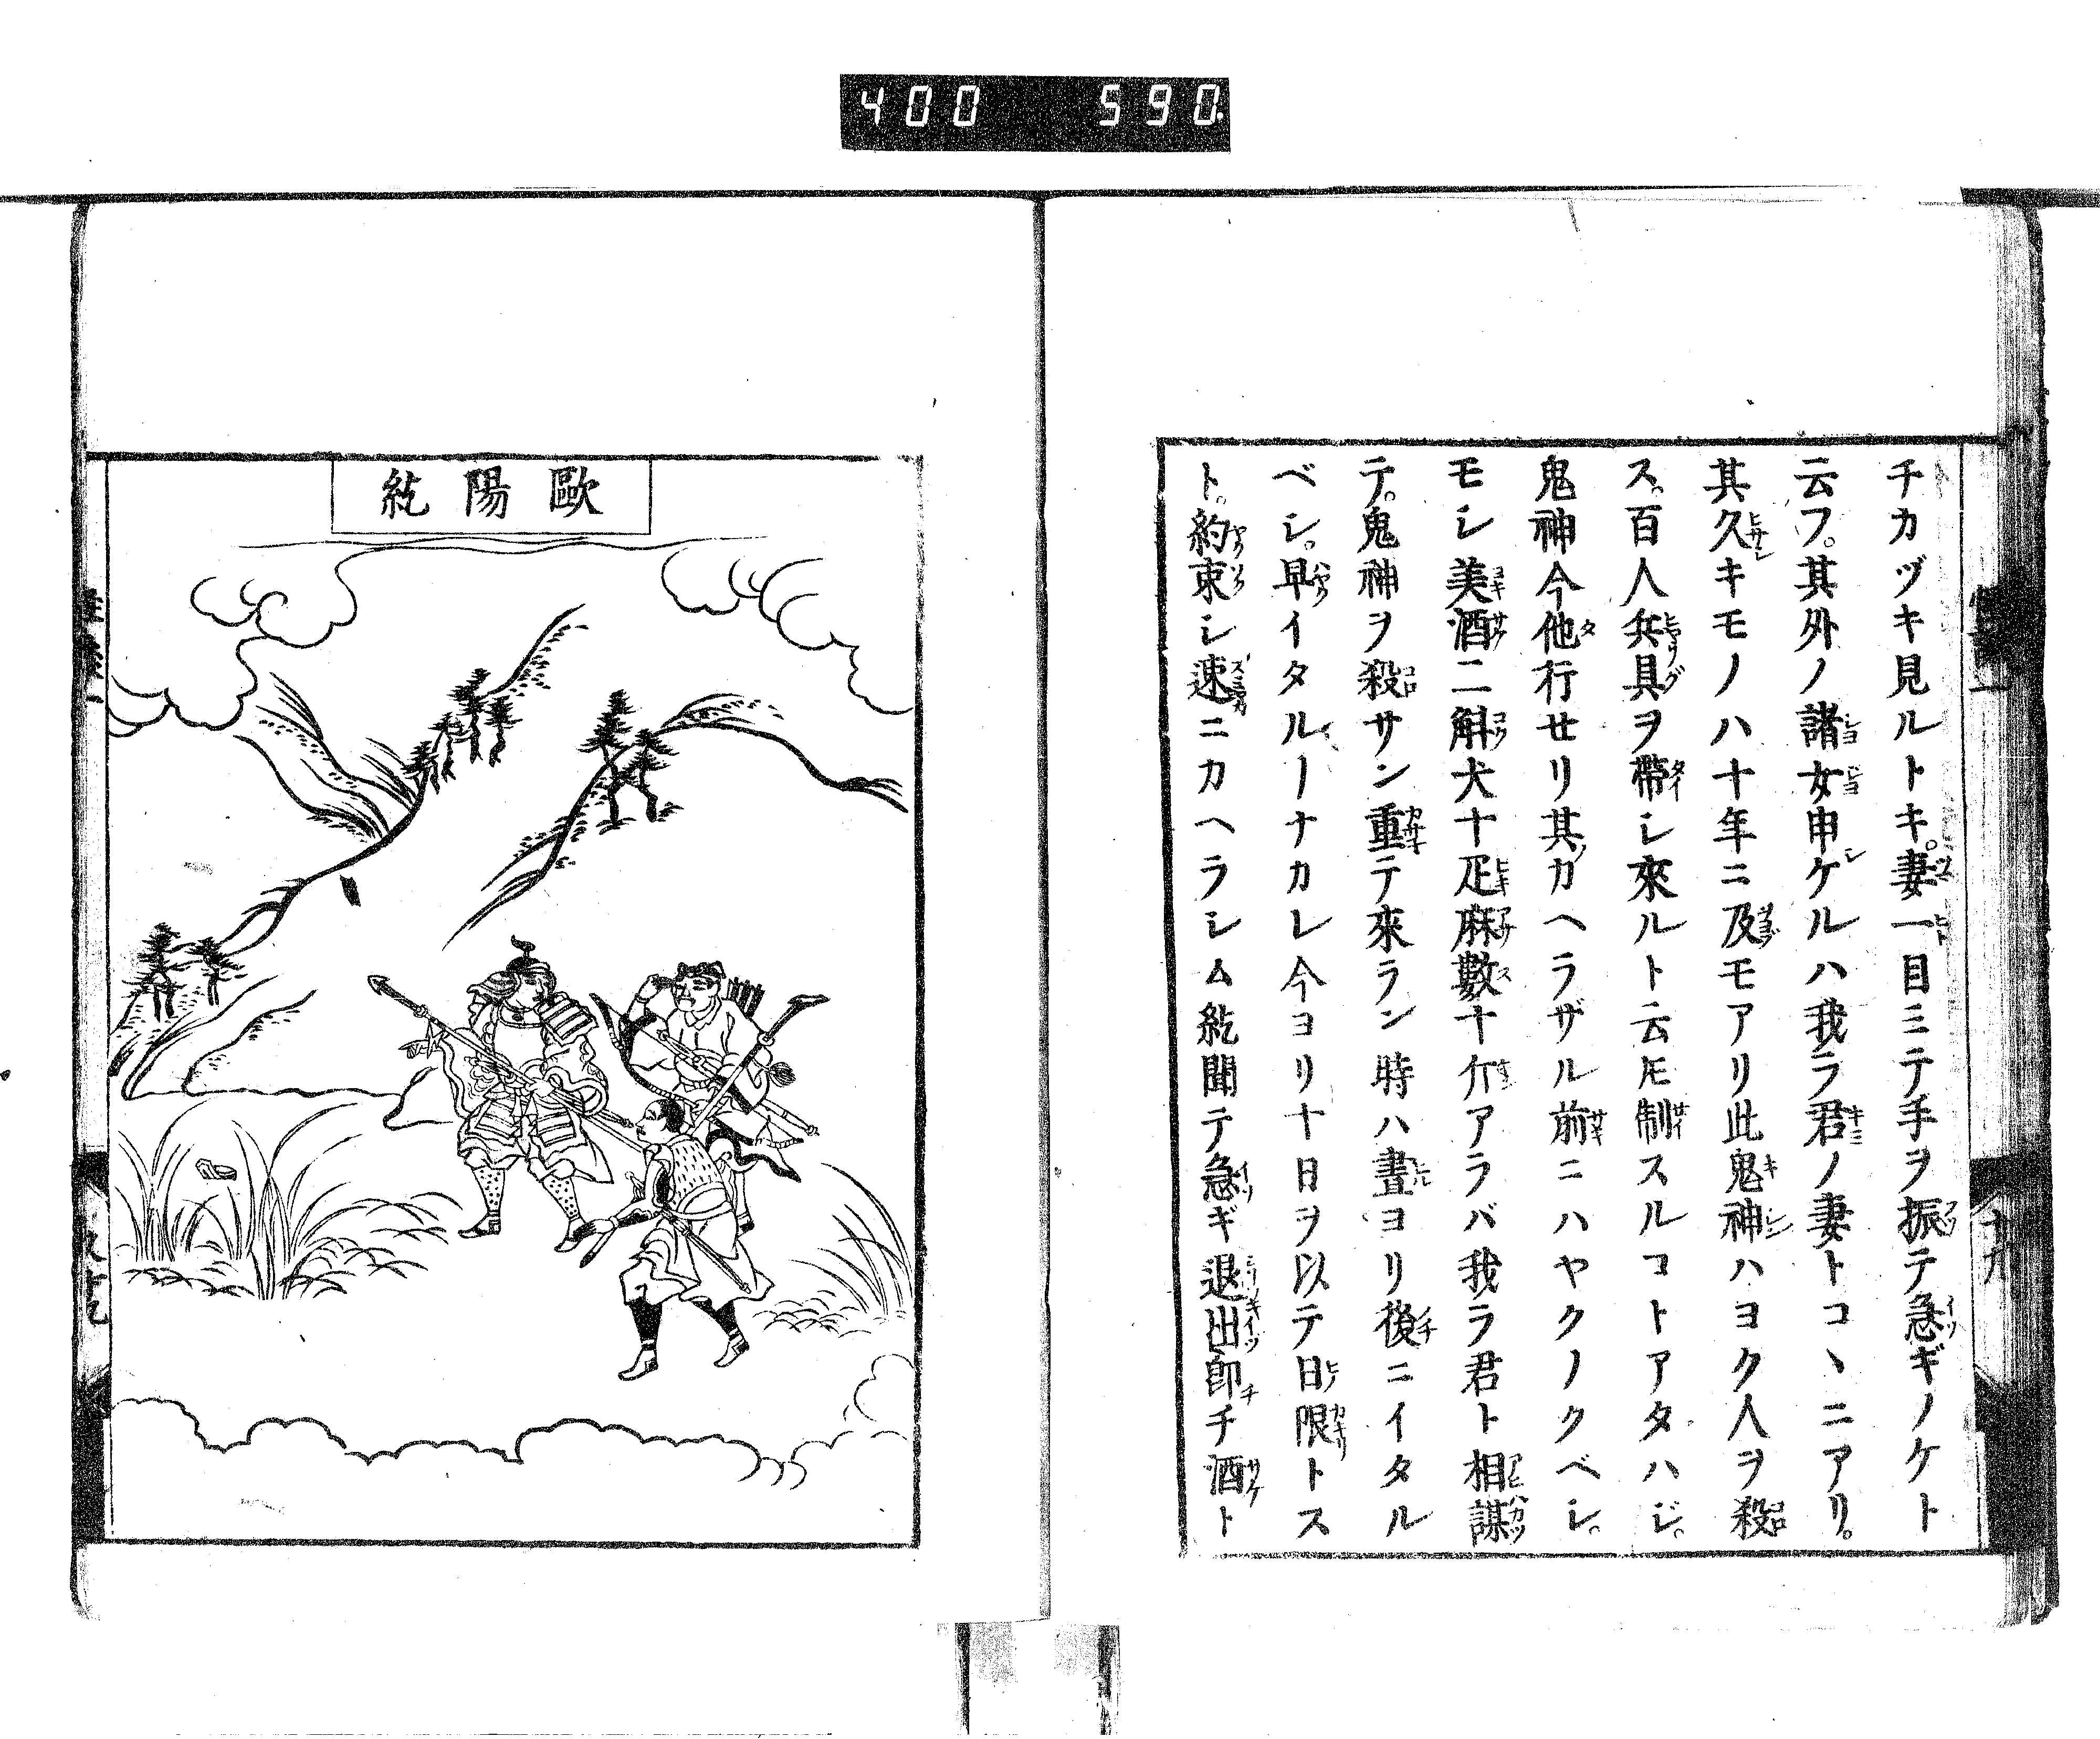 400 590.
チカヅキ見ルトキ。妻一目ミテ手ヲ振テ急ギノケト
云フ。其外ノ諸女申ケルハ我ラ君ノ妻トコヽニアリ。
其久キモノハ十年ニ及モアリ此鬼神ハヨク人ヲ殺
ス。百人兵具ヲ帶シ來ルト云𪜈制スルコトアタハジ。
鬼神今他行せリ其カヘラザル前ニハヤクノクベシ。
モシ美酒二斛犬十疋麻數十介アラバ我ラ君ト相謀
テ。鬼神ヲ殺サン重テ來ラン時ハ晝ヨリ後ニイタル
ベシ。早イタルヿナカレ今ヨリ十日ヲ以テ日限トス
ト。約束シ速ニカヘラシム紇聞テ急ギ退出即チ酒ト
十九
歐陽紇